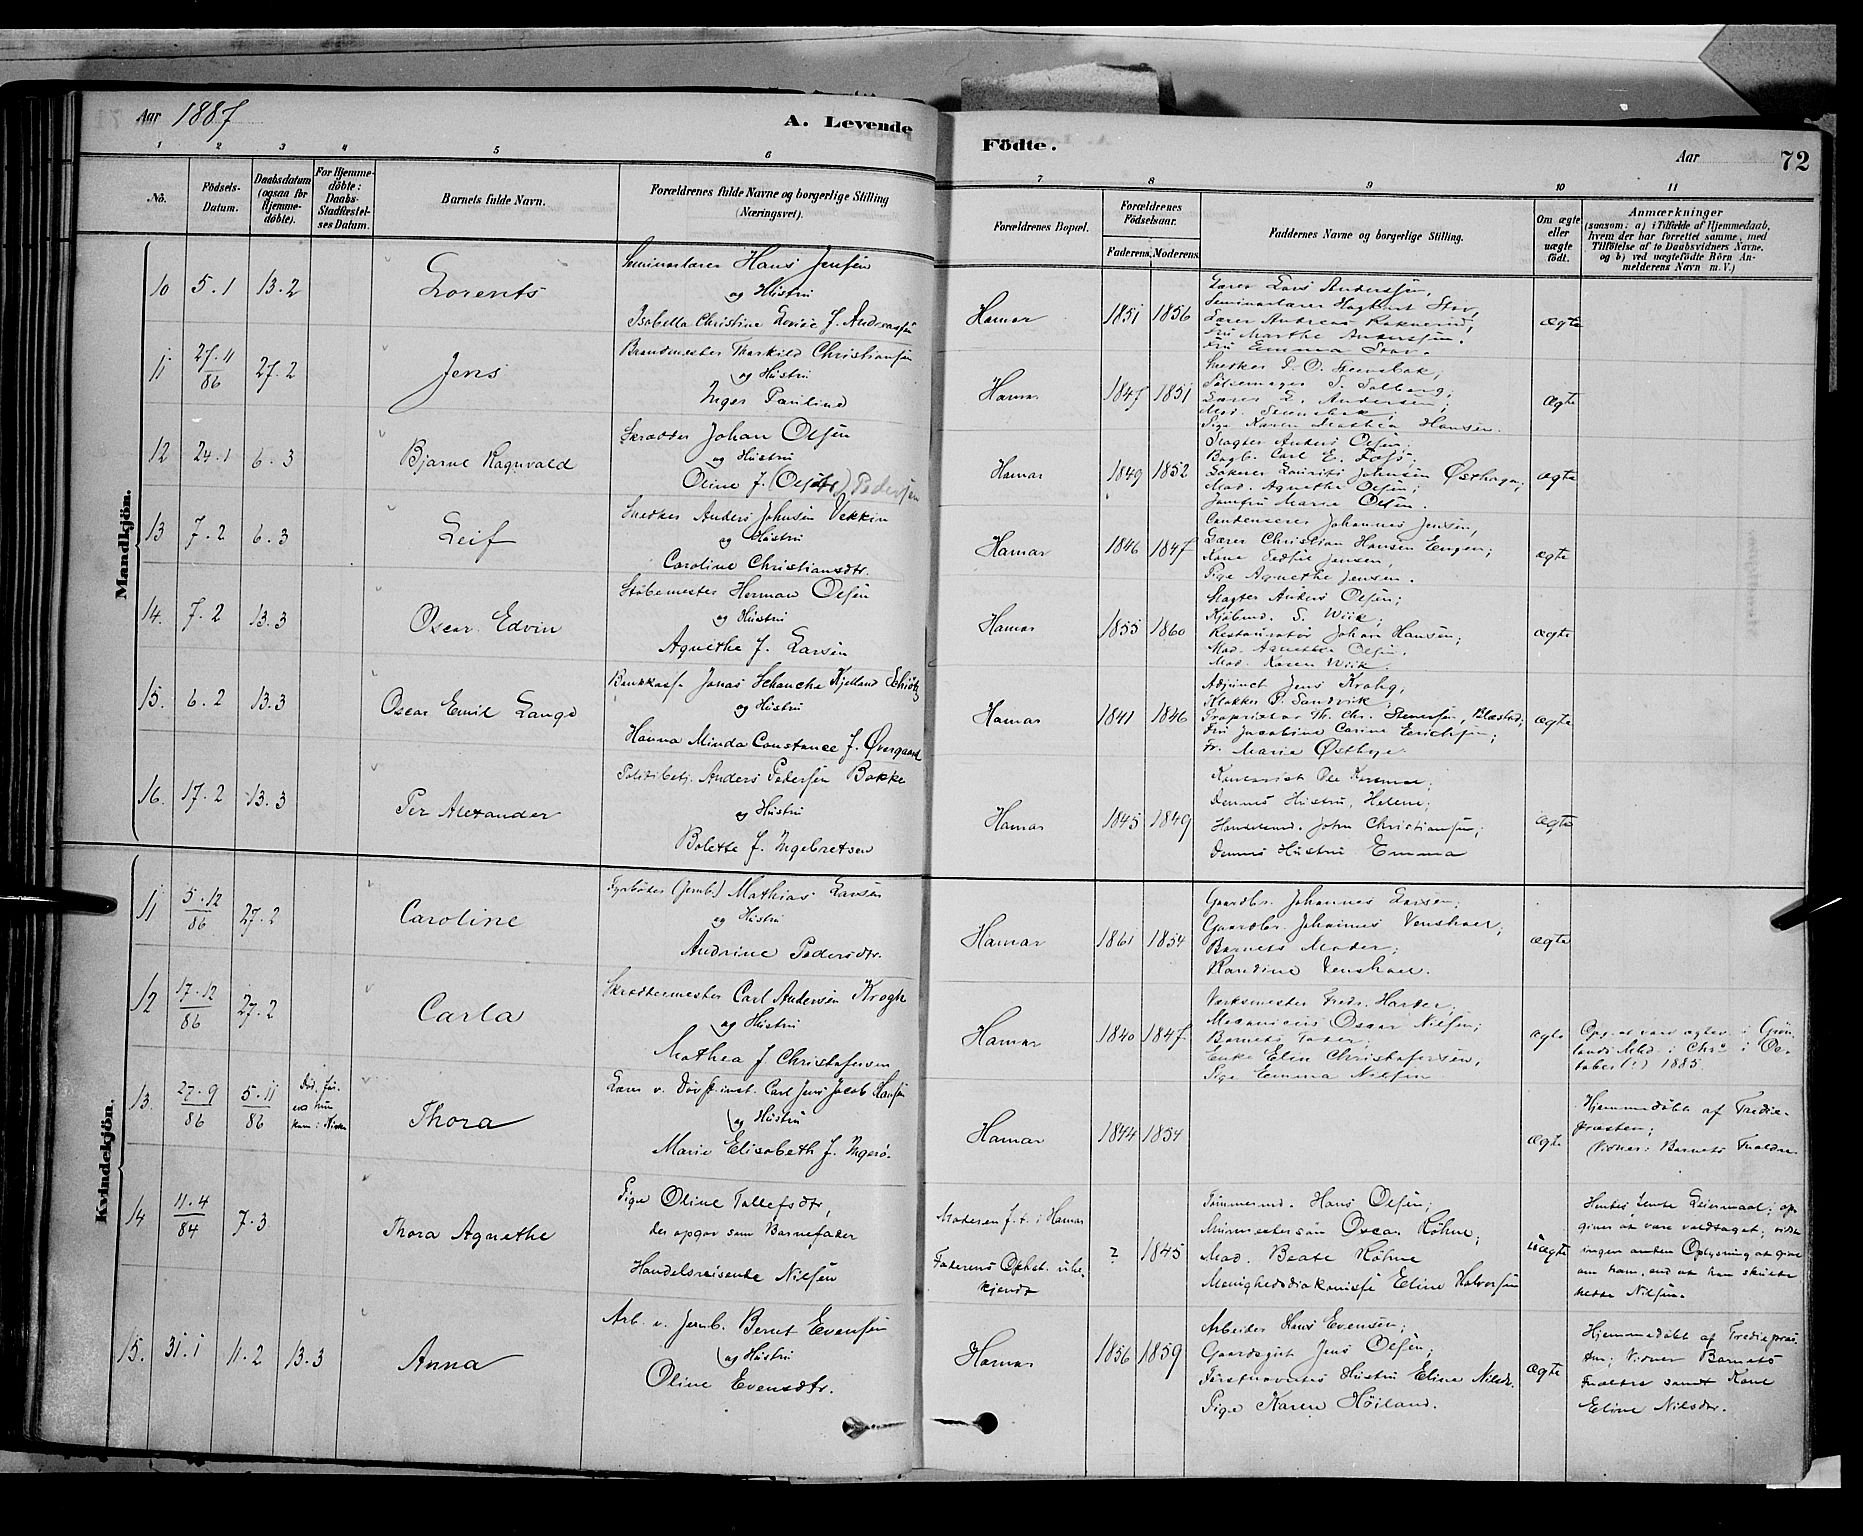 Aar 1887
A. Levende
Födte.
Aar
72
1 2 3 4 5 6 7 8 9 10 11
No.
Födsels-
Datum.
Daabsdatum
(ogsaa for
Hjemme-
døbte).
For Hjemme-
døbte:
Daabs-
Stadfæstel-
ses Datum.
Barnets fulde Navn.
Forældrenes fulde Navne og borgerlige Stilling
(Næringsvei).
Forældrenes Bopæl.
Forældrenes
Födselsaar.
Faderens. Moderens.
Faddernes Navne og borgerlige Stilling.
Om ægte
eller
uægte
födt.
Anmærkninger
(saasom: a) i Tilfælde af Hjemmedaab,
hvem der har forrettet samme, med
Tilföielse af to Daabsvidners Navne.
og b) ved uægtefödte Börn An-
melderens Navn m. V.)
Mandkjön.
10 5.1 13.2
Lorents
Seminarlærer Hans Jensen
og Hustru
Isabella Christine Lovise f. Andreassen
Hamar 1851 1856
Lærer Lars Anderssen,
Seminarlærer Hagbart Stov,
Lærer Andreas Raknerud,
Fru Marthe Anderssen.
Fru Emma Stov.
ægte
11 27.11 86 27.2
Jens
Brandmester Thorkild Christiansen
og Hustru
Inger Pauline
Hamar 1847 1851
Snedker P. O. Steensbak,
Lærer L. Andersen;
Mad. Steensbak;
Pige Karen Mathea Hansen.
ægte
12 24.1 6.3
Bjarne Ragnvald
Skrædder Johan Olsen
og Hustru
Oline f. (Olsdtr) Pedersen
Hamar 1849 1852
Slagter Anders Olsen;
Bogb. Carl E.
Lauritz Johnsen Østhage;
Mad. Agnethe Olsen;
Jomfru Marie Olsen.
ægte
13 7.2 6.3
Leif
Snedker Anders Johnsen Vekkin
og Hustru
Caroline Christiansdtr.
Hamar 1846 1847
Condenserer Johannes Jensen,
Lærer Christian Hansen Engen;
Kone Jensen,
Pige Agnethe Jensen.
ægte
14. 7.2 13.3
Oscar Edvin
Støbemester Herman Olsen
og Hustru
Agnethe f. Larsen
Hamar 1855 1860
Slagter Anders Olsen;
Kjøbmd. S. Wiik;
Restauratør Johan Hansen;
Mad. Agnethe Olsen.
Mad. Karen Wiik.
ægte
15. 6.2 13.3
Oscar Emil Lange
Bankkass. Jonas Schancke Kjelland Schiøtz
og Hustru
Hanna Minda Constance f. Øvergaard
Hamar 1841 1846
Adjunct Jens Krohg,
Klokker P. Sandvik,
Proprietær Th. Chr. Stenersen, Blæstad;
Fru Jacobine Carine Erichsen;
Fr. Marie Østbye.
ægte
16. 17.2 13.3
Per Alexander
Politibetj. Anders Pedersen Bakke
og Hustru
Bolette f. Ingebretsen
Hamar 1845 1849
Dennes Hustru, Helene;
Handelsmd. John Christiansen;
Dennes Hustru Emma
ægte
Kvindekjön.
11 5.12 86 27.2
Caroline
Fyrbøter (Jernb.) Mathias Larsen
og Hustru
Andrine Pedersdtr.
Hamar 1861 1854
Gaardbr. Johannes Larsen;
Gaardbr. Johannes Venshoel,
Barnets Moder;
Randine Venshoel.
ægte
12 17.12 86 27.2
Carla
Skræddermester Carl Andersen Krogh
og Hustru
Mathea f Christofersen
Hamar 1840 1847
Værksmester Fredr. Harder,
Mecanicus Oscar Nilsen;
Barnets Fader;
Enke Elin Christofersen;
Pige Emma Nilsen
ægte
Opg. at være døbt i Grøn-
lands Mhd i Chra i Oc-
tober (!) 1885.
13. 27.9 86 5.11 86
Thora
Lærer v. Døvst.inst. Carl Jens Jacob Hansen
og Hustru
Marie Elisabeth f. Ingerø.
Hamar 1844 1854
ægte
Hjemmedøbt af Tredie-
præsten;
Vidner: Barnets Forældre
14 11.4 84 7.3
Thora Agnethe
Pige Oline Tollefsdtr,
der opgav som Barnefader
Handelsreisende Nilsen
Moderen f. t. i Hamar
Faderens Ophst. ube-
kjendt
? 1845
Tømmermd. Hans Olsen;
Murmestersøn Oscar Køhne;
Mad. Beate Køhne
Menighedsdiakonisse Eline Halvorsen
uægte
Hendes 1ste Leiermaal; op-
giver at være voldtaget; vidste
ingen anden Oplysning at give
om ham, end at han skulde
hedde Nilsen.
15. 31.1 11.2 13.3
Anna
Arb. v. Jernb. Bernt Evensen
og Hustru
Oline Evensdtr.
Hamar 1856 1859
Arbeider Hans Evensen;
Gaardsgut Jens Olsen;
Førstnævntes Hustru Eline Nilsdr.
Pige Karen Høiland.
ægte
Hjemmedøbt af Trediepræs-
ten; Vidner Barnets
Forældre samt Kone
Eline Nilsdtr.